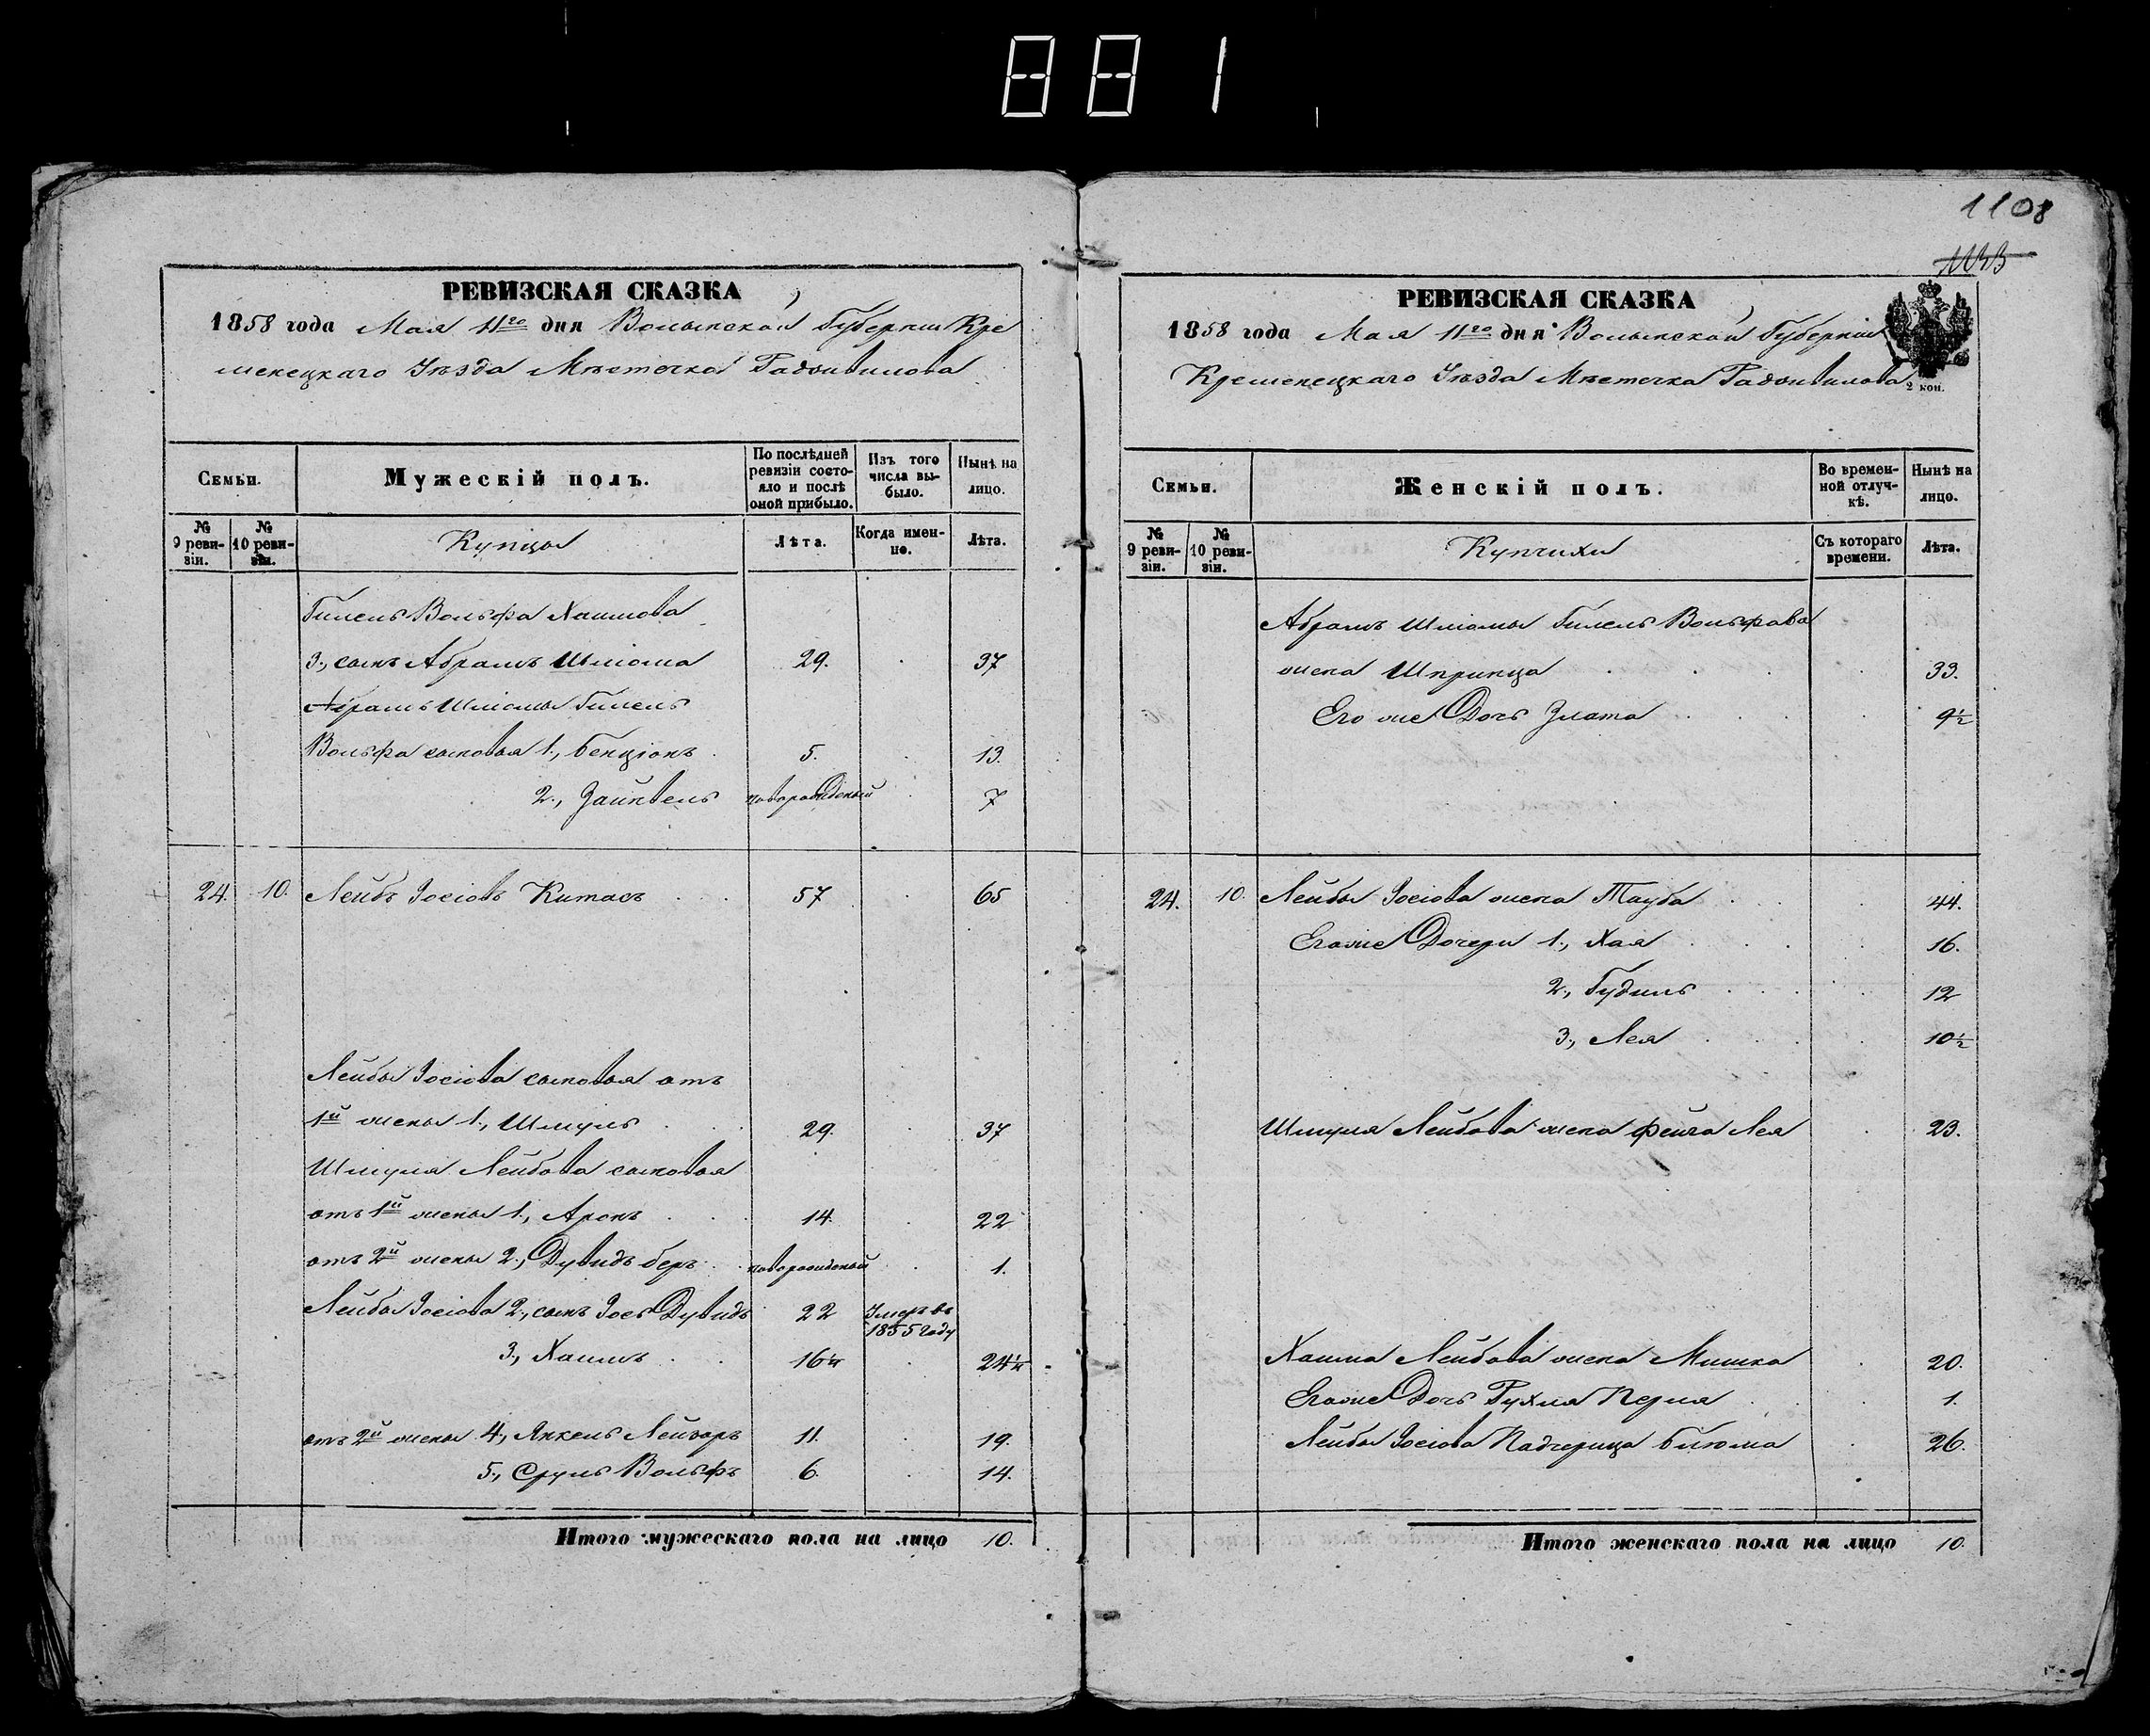 881
1108
1133
РЕВИЗСКАЯ СКАЗКА
1858 года Мая 11го дня Волынской Губернии Кре
менецкаго Уѣзда Мѣстечка Радзивилова
Семьи.
Мужескій полъ.
По послѣдней ревизіи состо-
яло и послѣ оной прибыло.
Изъ того числа вы-
было.
Нынѣ на лицо.
№ 9 реви-
зіи.
№ 10 реви-
зіи.
Купцы
Лѣта.
Когда имен-
но.
Лѣта.
Гилель Вольфа Хаимова
3., сынъ Абрамъ Шліома 29. 37
Абрамъ Шліомы Гилель
Вольфа сыновья 1., Бенціонъ 5. 13.
2., Зайнвель новорожденый 7
24. 10. Лейбъ Іосіовъ Китасъ 57 65
Лейбы Іосіова сыновья отъ
1й жены 1., Шмуль 29. 37
Шмуля Лейбова сыновья
отъ 1й жены 1., Аронъ 14. 22
отъ 2й жены 2., Дувидъ Беръ новорожденый 1.
Лейбы Іосіова 2., сынъ Іось Дувидъ 22 Умеръ въ
1855 году
3., Хаимъ 16½ 24½
отъ 2й жены 4., Янкель Лейзоръ 11. 19.
5., Сруль Вольфъ 6. 14.
Итого мужескаго пола на лицо 10.
РЕВИЗСКАЯ СКАЗКА
1858 года Мая 11го дня Волынской Губерніи
Кременецкаго Уѣзда Мѣстечка Радзивилова
2 коп.
Семьи.
Женскій полъ.
Во времен-
ной отлуч-
кѣ.
Нынѣ на лицо.
№ 9 реви-
зіи.
№ 10 реви-
зіи.
Купчихи
Съ котораго времени.
Лѣта.
Абрамъ Шліомы Гилель Вольфова
жена Шпринца 33.
Его же Дочь Злата 9½
24. 10. Лейбы Іосіова жена Тауба 44.
Егоже Дочери 1., Хая 16.
2., Гудиль 12
3., Лея 10½
Шмуля Лейбова жена Фейга Лея 23.
Хаима Лейбова жена Мишка 20.
Егоже Дочь Рухля Перля 1.
Лейбы Іосіова Падчерица Блюма 26.
Итого женскаго пола на лицо 10.